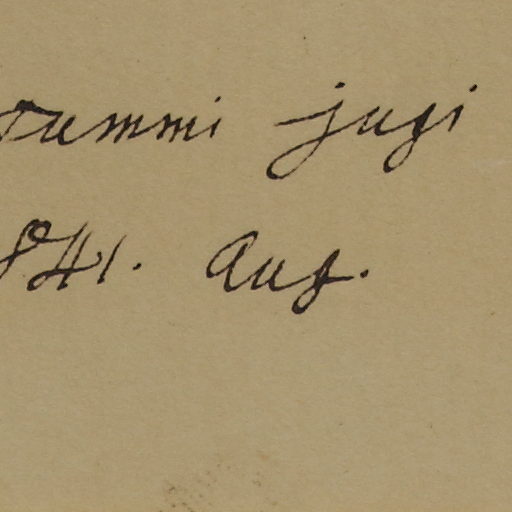 summi jugi
841. Aug.